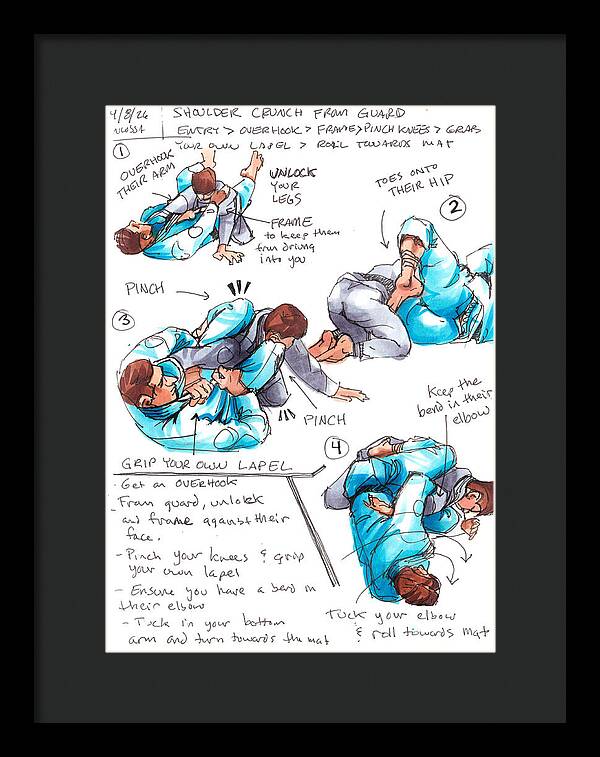 4/8/26
SHOULDER CRUNCH FROM GUARD
ENTRY > OVERHOOK > FRAME > PINCH KNEES > GRAB
YOUR OWN LAPEL > ROLL TOWARDS MAT
1
OVERHOOK
THEIR ARM
UNLOCK
YOUR
LEGS
FRAME
to keep them
from driving
into you
TOES ONTO
THEIR HIP
2
PINCH
3
PINCH
GRIP YOUR OWN LAPEL
Keep the
bend in their
elbow
4
Tuck your elbow
& roll towards mat
- Get an OVERHOOK
- From guard, unlock
and frame against their
face.
- Pinch your knees & grip
your own lapel
- Ensure you have a bend in
their elbow
- Tuck in your bottom
arm and turn towards the mat